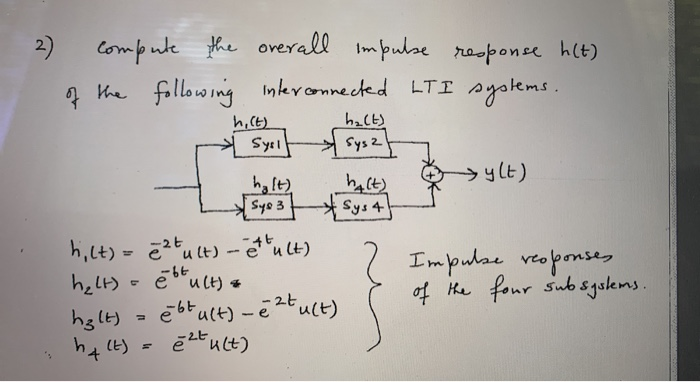 2) compute the overall impulse response h(t)
of the following interconnected LTI systems.
h₁(t) h₂(t)
Sys1 Sys 2
+ y(t)
h₃(t) h₄(t)
Sys 3 Sys 4
h₁(t) = e^{-2t}u(t) - e^{-4t}u(t)
h₂(t) = e^{-6t}u(t)
h₃(t) = e^{-6t}u(t) - e^{-2t}u(t)
h₄(t) = e^{-2t}u(t)
Impulse responses
of the four subsystems.